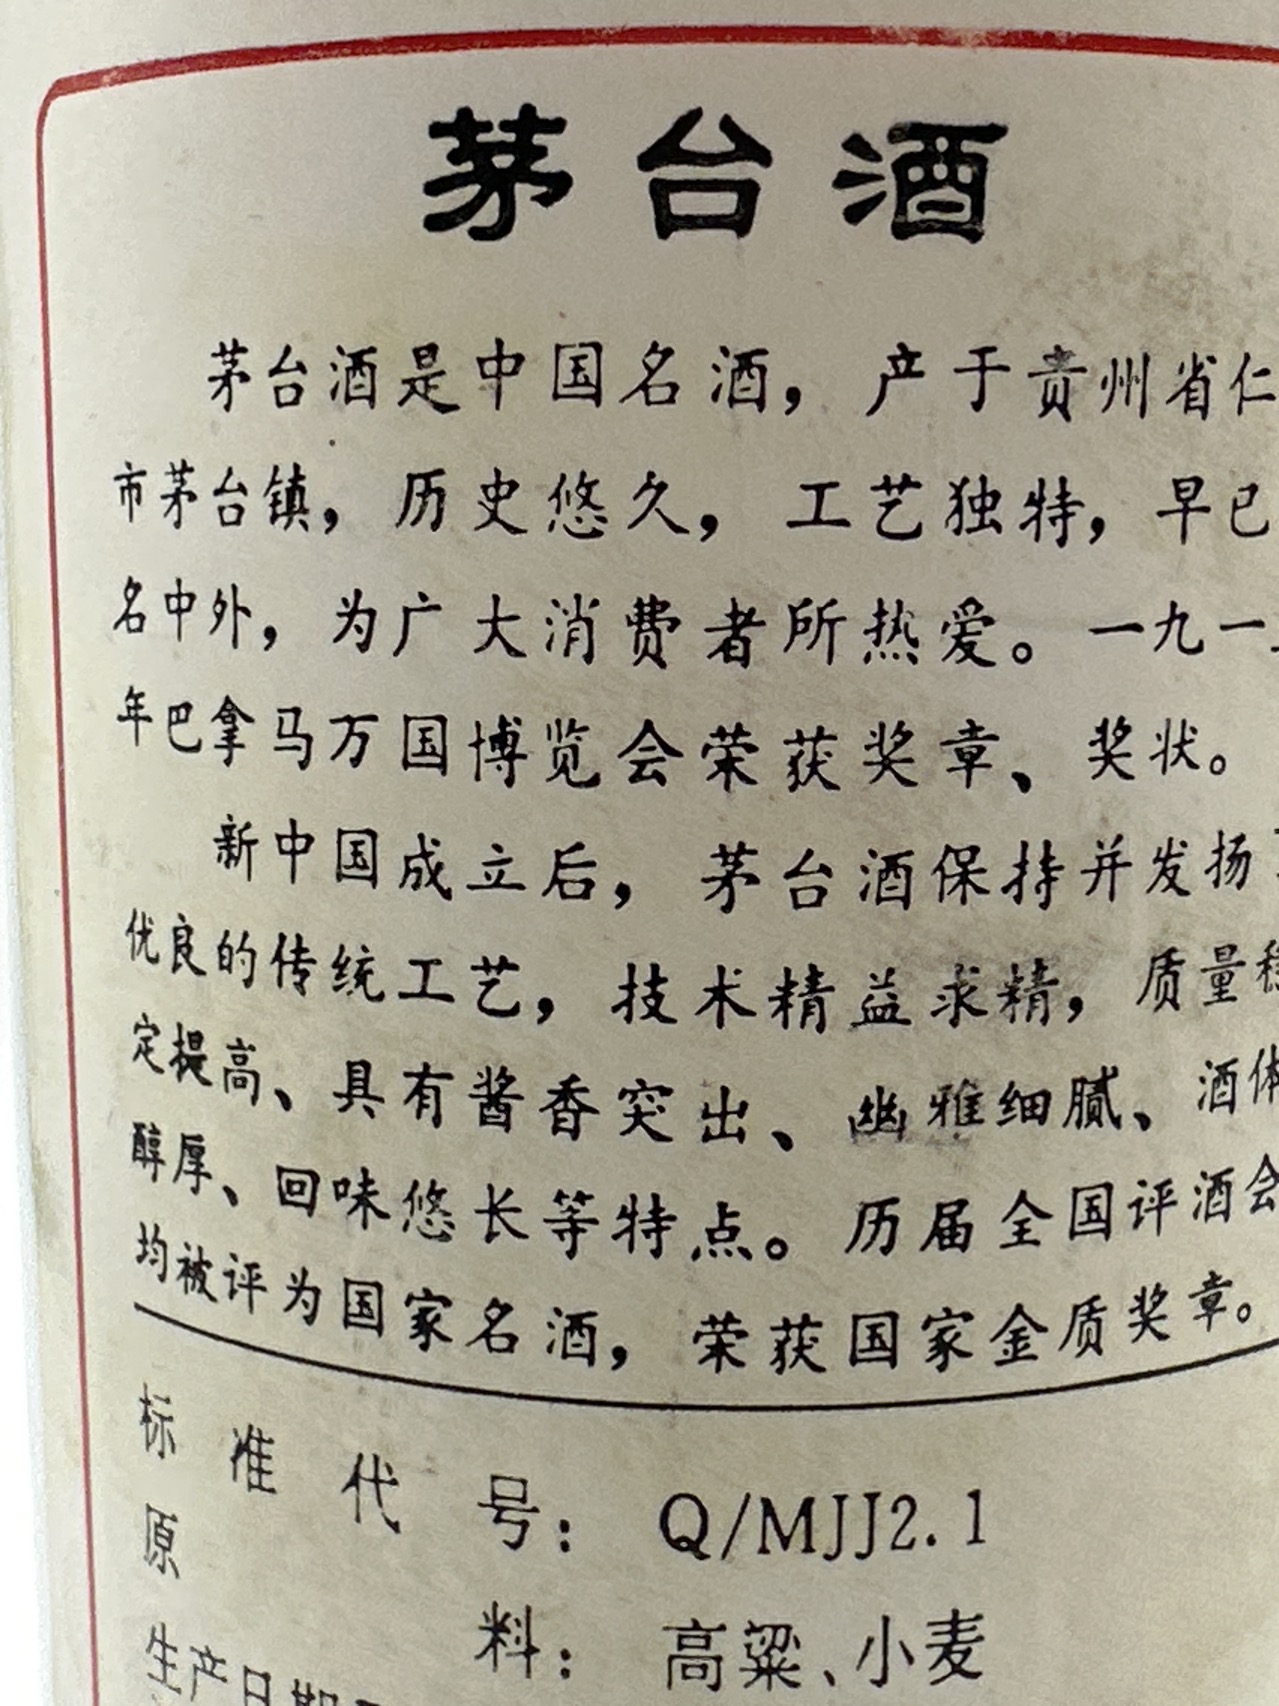 茅台酒
茅台酒是中国名酒，产于贵州省仁
市茅台镇，历史悠久，工艺独特，早已
名中外，为广大消费者所热爱。一九一
年巴拿马万国博览会荣获奖章、奖状。
新中国成立后，茅台酒保持并发扬
优良的传统工艺，技术精益求精，质量稳
定提高、具有酱香突出、幽雅细腻、酒体
醇厚、回味悠长等特点。历届全国评酒会
均被评为国家名酒，荣获国家金质奖章。
标准代号：Q/MJJ2.1
原料：高粱、小麦
生产日期